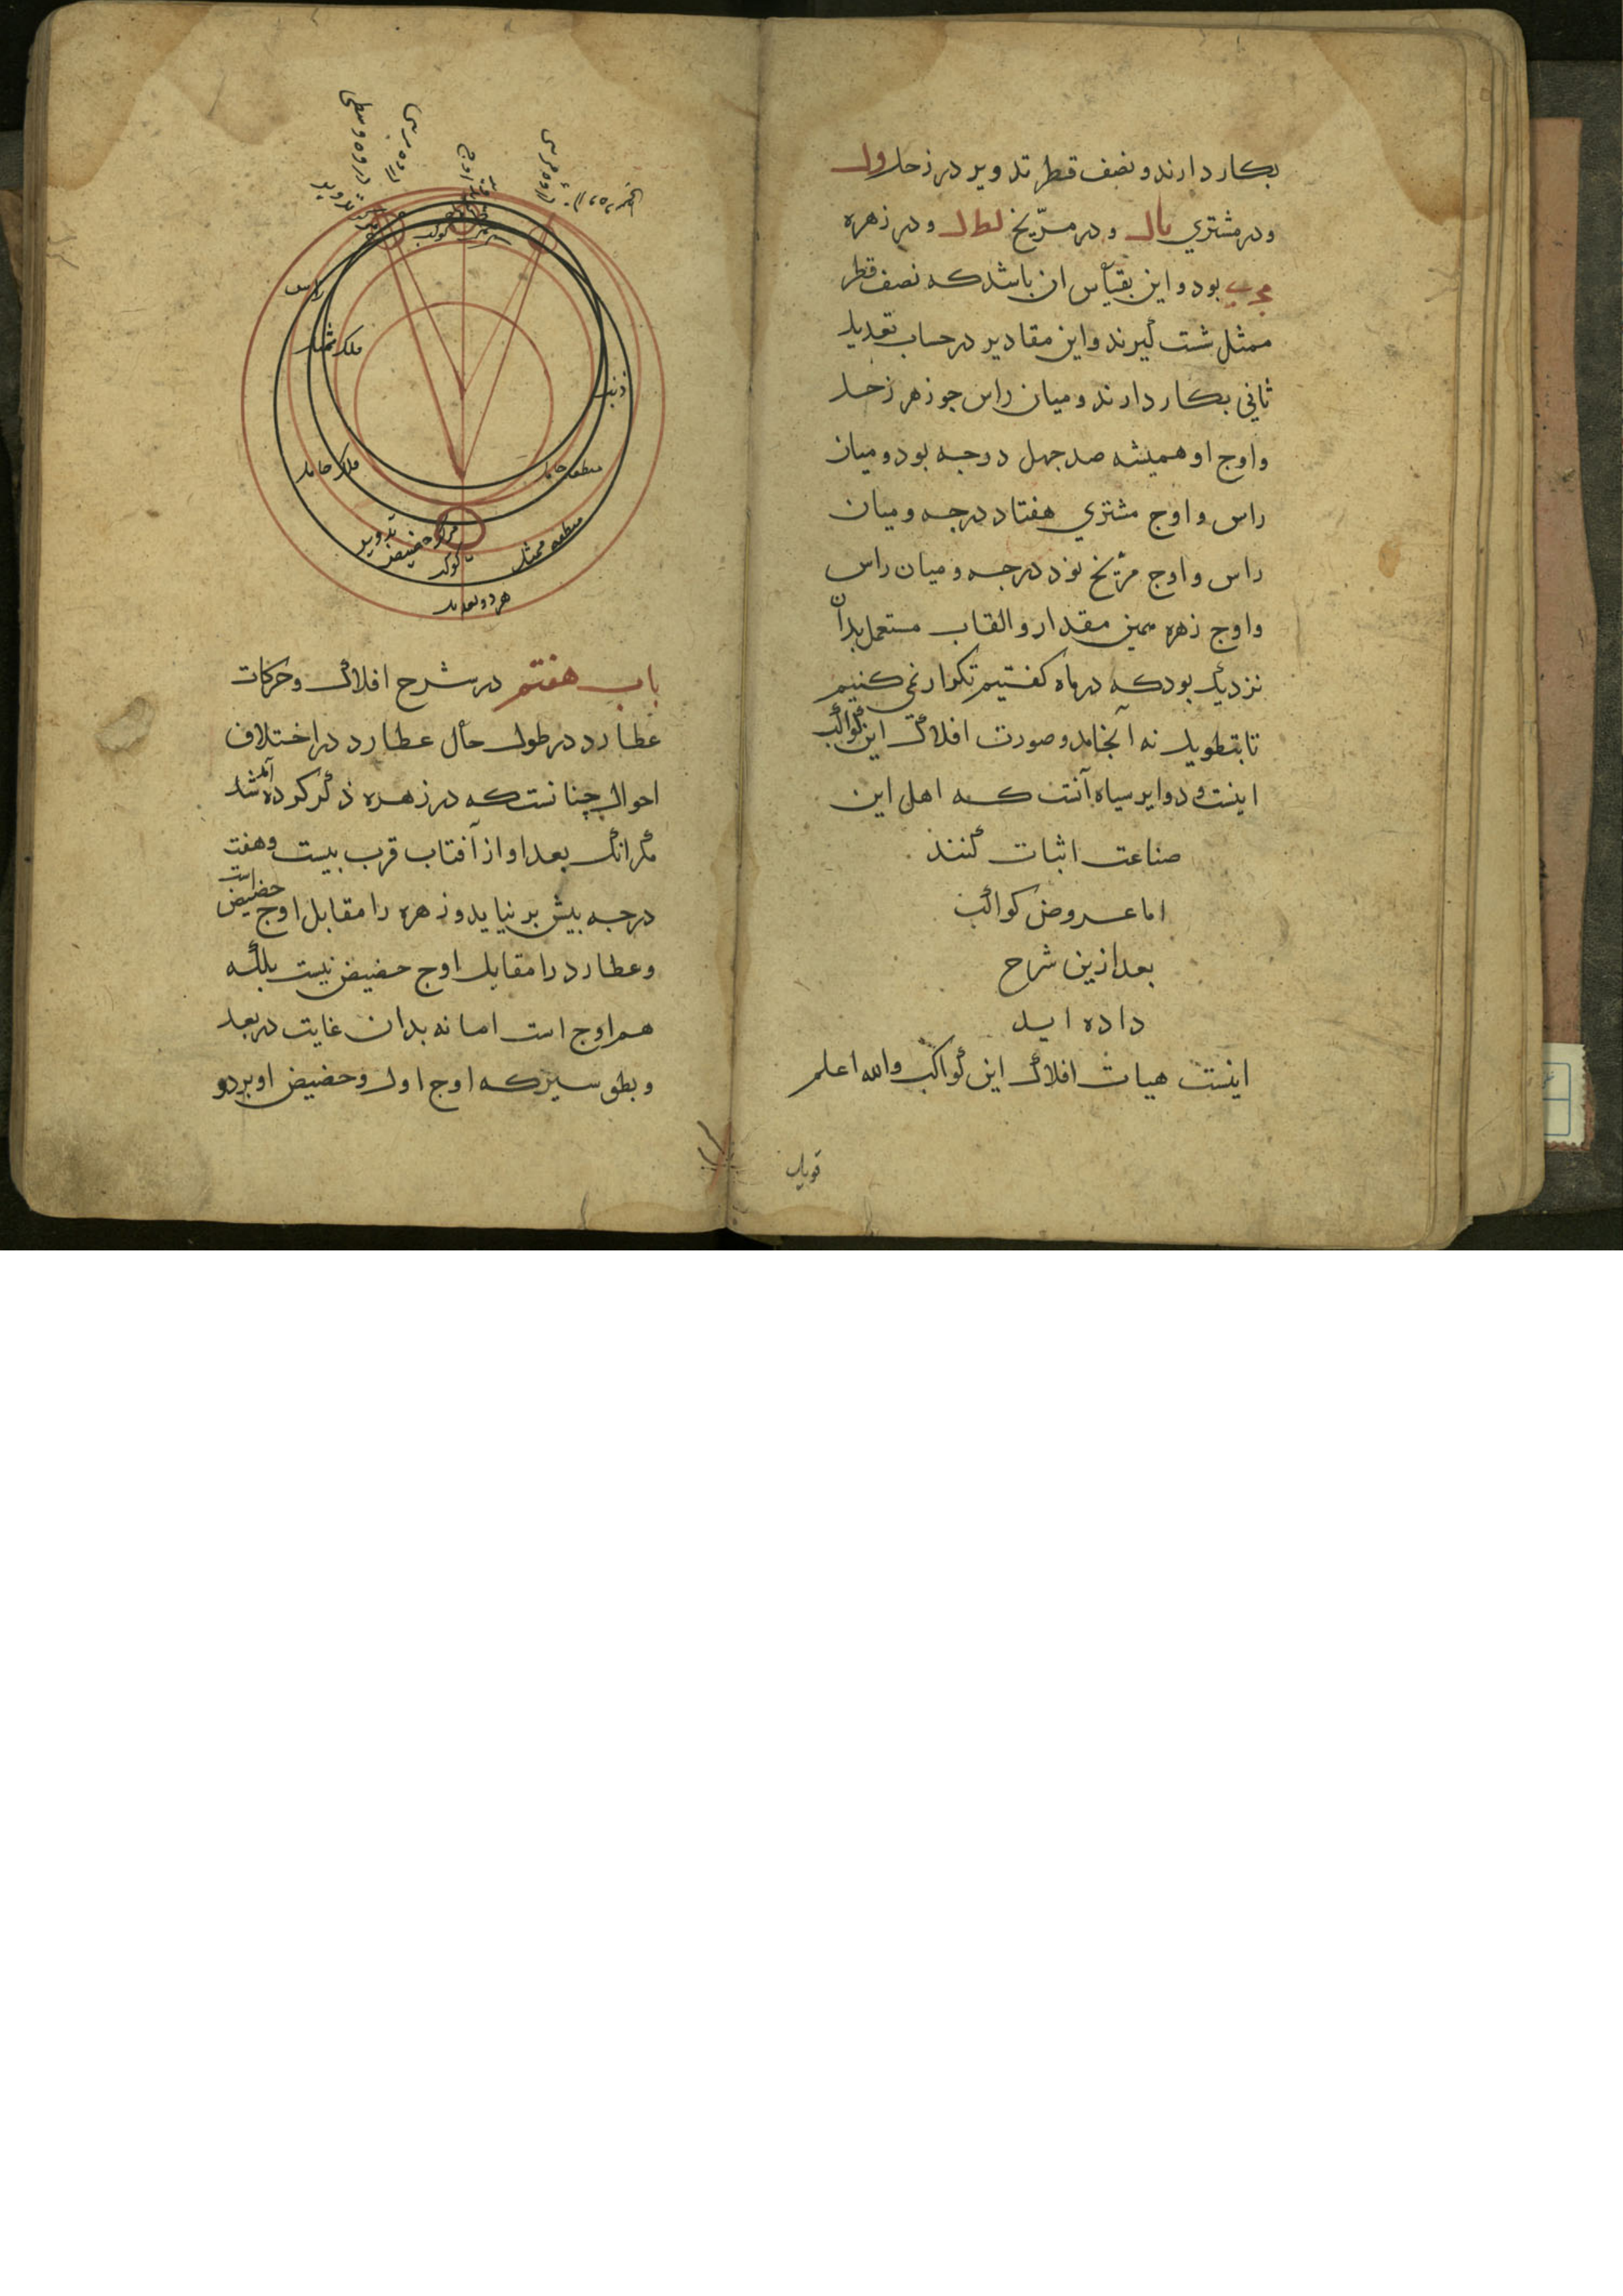 بکار دارند و نصف قطر تدویر در زحل ول
و در مشتری یال و در مرّیخ لط ل و در زهره
مجی بود و این بقیاس ان باشد که نصف قطر
ممثل شت گیرند و این مقادیر در حساب تعدیل
ثانی بکار دارند و میان راس جوزهر زحل
و اوج او همیشه صد جهل درجه بود و میان
راس و اوج مشتری هفتاد درجه و میان
راس و اوج مریخ نود درجه و میان راس
و اوج زهره همین مقدار و القاب مستعمل بدان
نزدیک بود که در ماه کفتیم تکرار نمی کنیم
تا بتطویل نه انجامد و صورت افلاک این کواکب
اینست و دوایر سیاه آنست که اهل این
صناعت اثبات کنند
اما عروض کواکب
بعد ازین شرح
داده اید
اینست هیات افلاک این کواکب والله اعلم
ذروه وسطی
مرکز تدویر
راس
فلک ممثل
ذنب
فلک حامل
منطقه حامل
مرکز تدویر
حضیض
کوکب
منطقه ممثل
هر دو تعدیل
باب هفتم در شرح افلاک و حرکات
عطارد در طول حال عطارد در اختلاف
احوال چنانست که در زهره ذکر کرده آمد شد
مگر انک بعد او از آفتاب قرب بیست و هفت
درجه بیش بر نیاید و زهره را مقابل اوج حضیض است
و عطارد را مقابل اوج حضیض نیست بلکه
هم اوج است اما نه بدان غایت در بعد
و بطو سیر که اوج اول و حضیض او بر دو